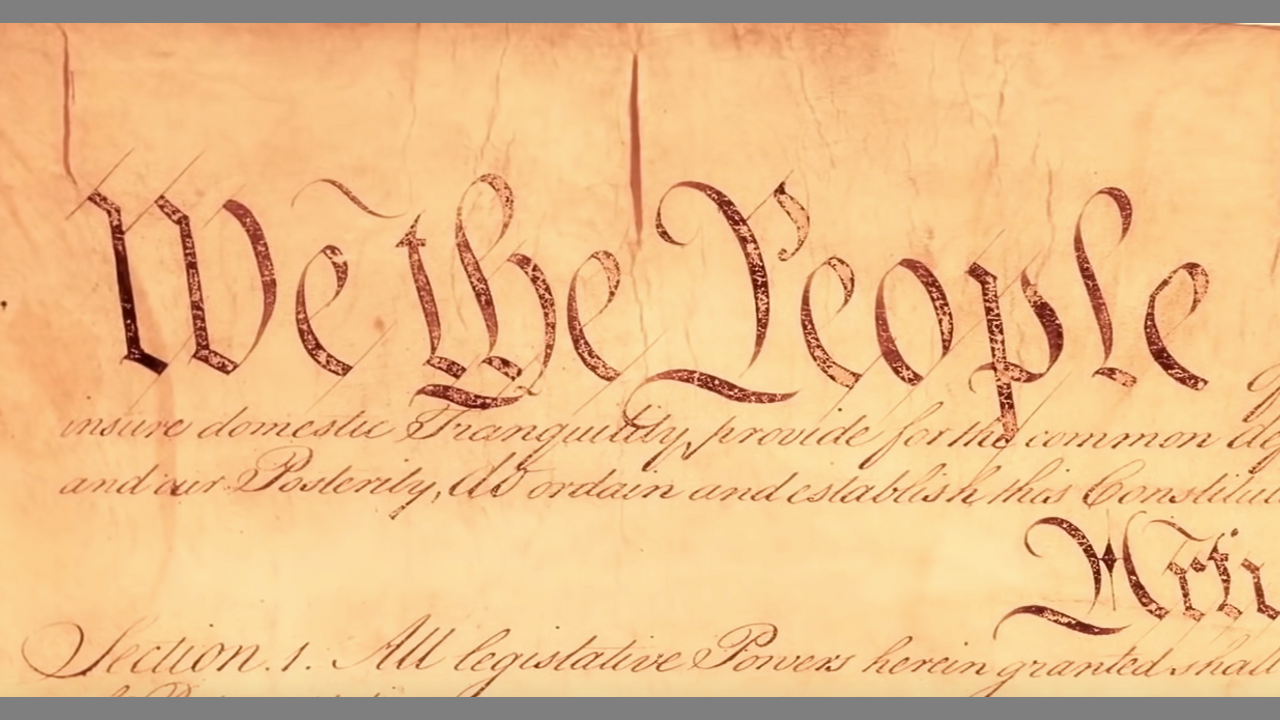 We the People
insure domestic Tranquility, provide for the common
and our Posterity, do ordain and establish this
Section. 1. All legislative Powers herein granted shall